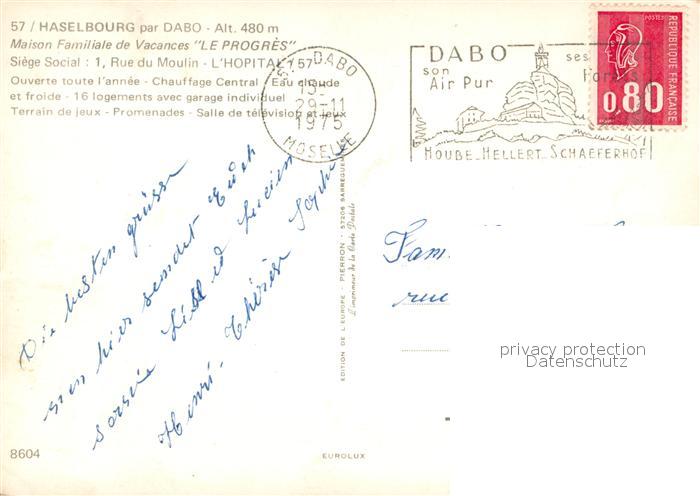 57 / HASELBOURG par DABO - Alt. 480 m
Maison Familiale de Vacances "LE PROGRÈS"
Siège Social : 1, Rue du Moulin - L'HOPITAL / 57
Ouverte toute l'année - Chauffage Central - Eau chaude
et froide - 16 logements avec garage individuel
Terrain de jeux - Promenades - Salle de télévision et jeux
57 DABO
15 H
29-11
1975
MOSELLE
DABO
son
Air Pur
ses
Forêts
HOUBE_HELLERT_SCHAEFERHOF
POSTES
RÉPUBLIQUE FRANÇAISE
0,80
Die besten grüsse
von hier sendet Euch
Lucien
Henri - Thérèse
Fam.
rue
EDITION DE L'EUROPE - PIERRON - 57206 SARREGUEMINES
L'imprimeur de la Carte Postale
privacy protection
Datenschutz
8604
EUROLUX